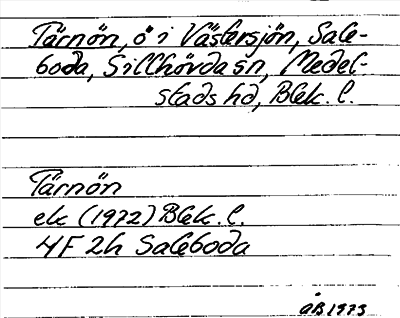 Tärnön, ö i Västersjön, Sale-
boda, Sillhövda sn, Medel-
stads hd, Blek. l.
Tärnön
ek (1972) Blek. l.
4F 2h Saleboda
ÅB 1973